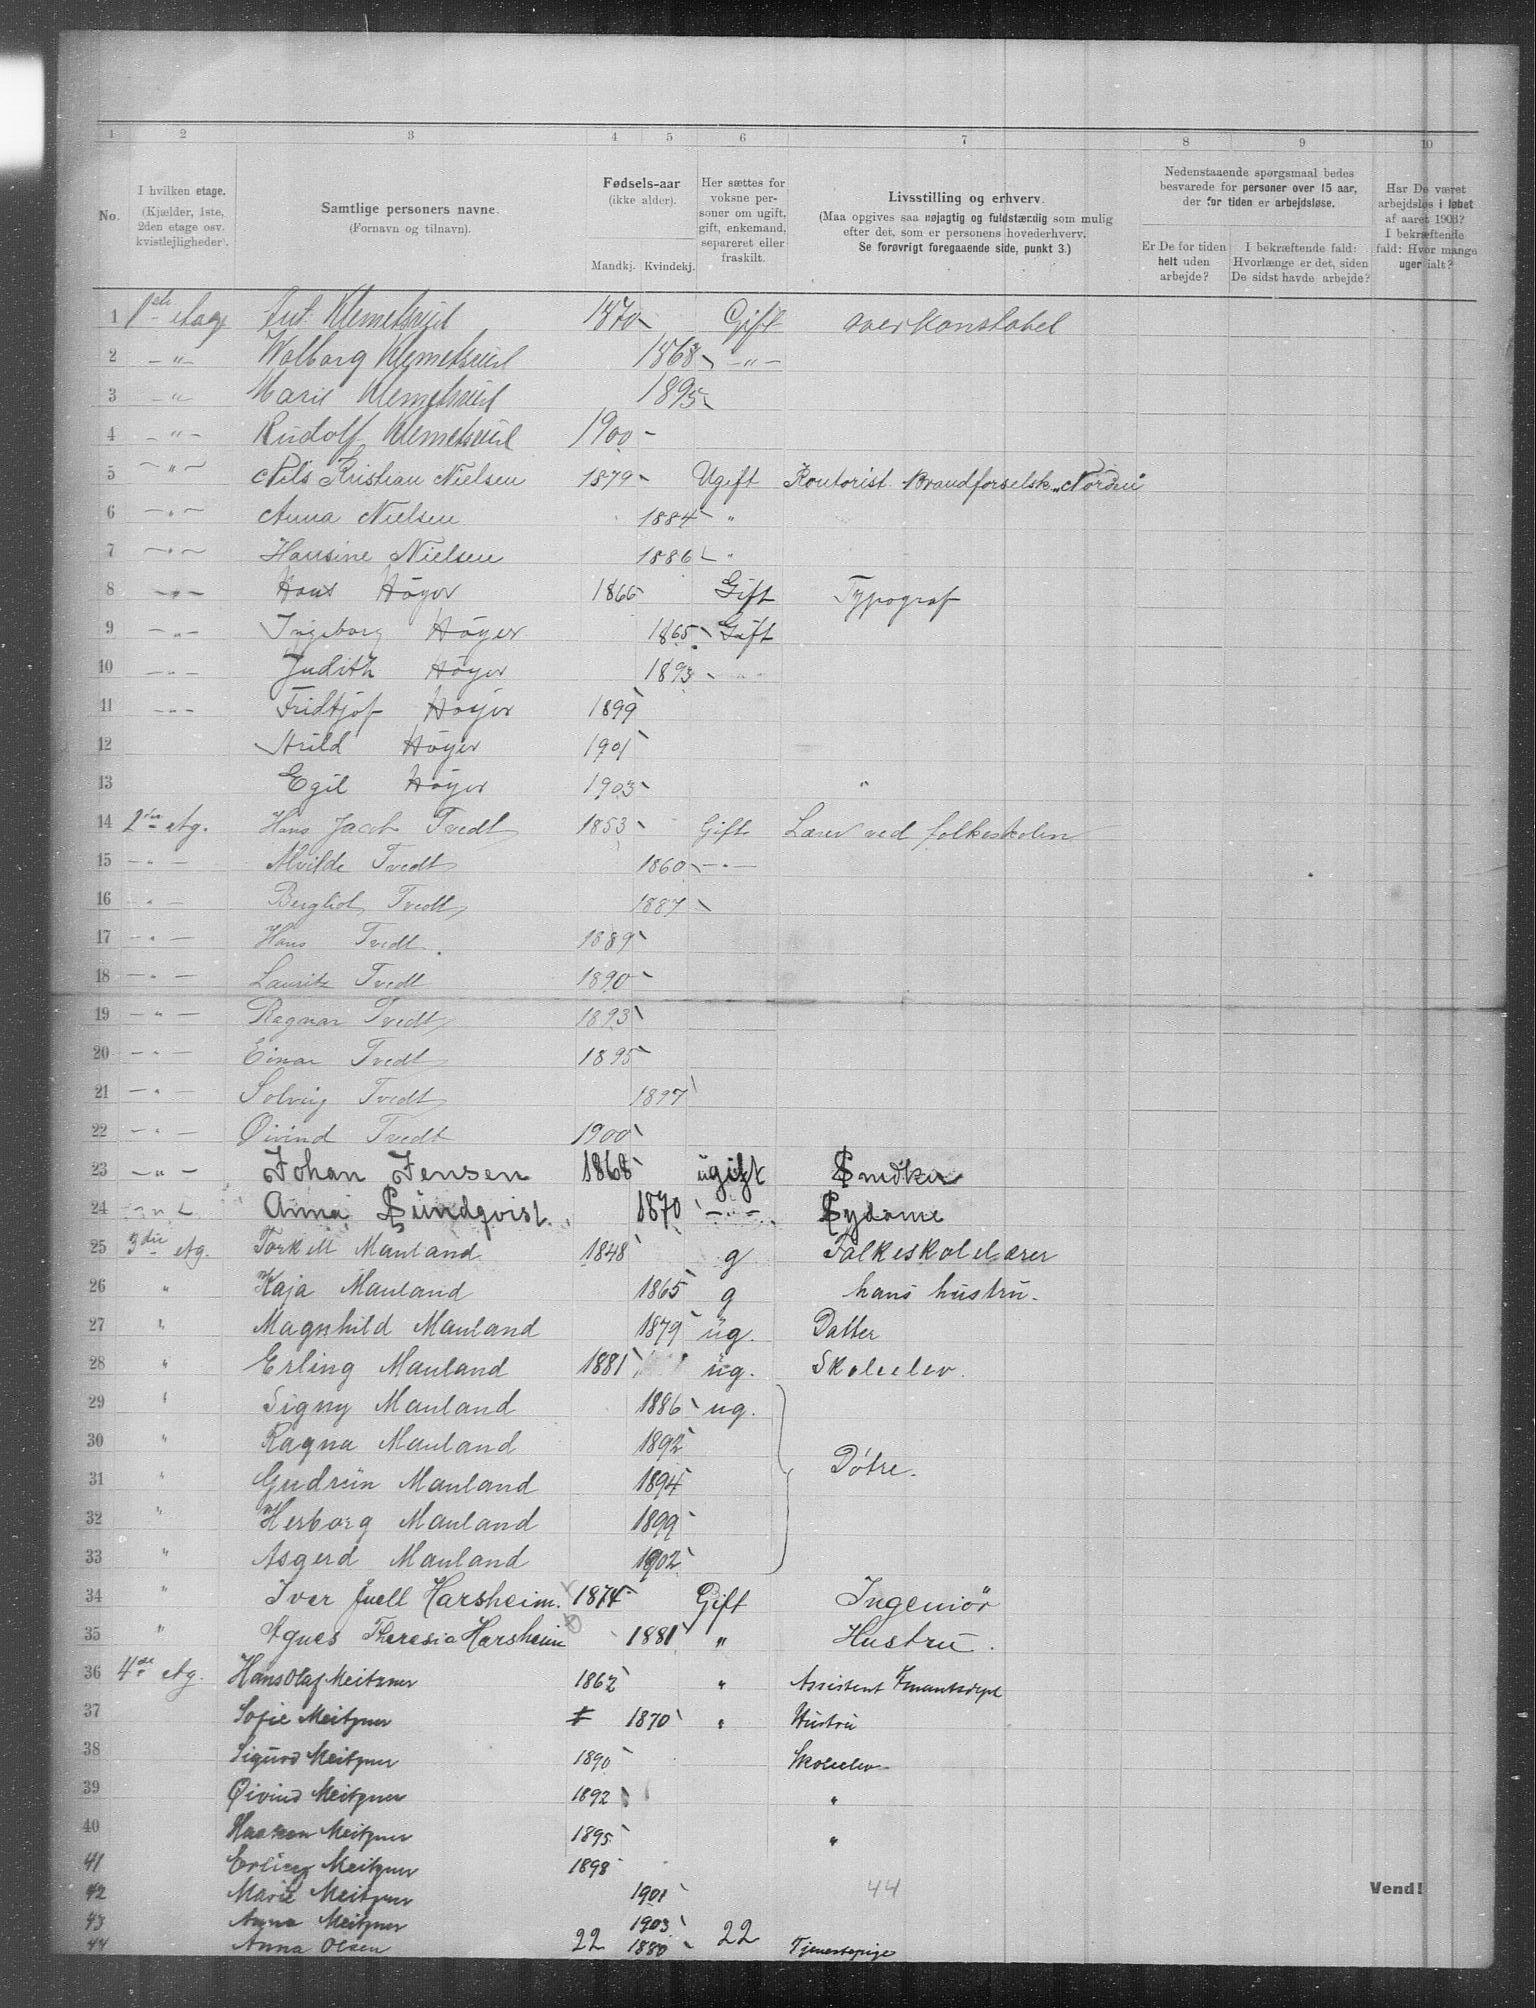 1 2 3 4 5 6 7 8 9 10
No.
I hvilken etage.
(Kjælder, 1ste,
2den etage osv.
kvistlejligheder).
Samtlige personers navne.
(Fornavn og tilnavn).
Fødsels-aar
(ikke alder).
Mandkj. Kvindekj.
Her sættes for
voksne per-
soner om ugift,
gift, enkemand,
separeret eller
fraskilt.
Livsstilling og erhverv.
(Maa opgives saa nøjagtig og fuldstændig som mulig
efter det, som er personens hovederhverv.
Se forøvrigt foregaaende side, punkt 3.)
Nedenstaaende spørgsmaal bedes
besvarede for personer over 15 aar,
der for tiden er arbejdsløse.
Er De for tiden
helt uden
arbejde?
I bekræftende fald:
Hvorlænge er det, siden
De sidst havde arbejde?
Har De været
arbejdsløs i løbet
af aaret 1903?
I bekræftende
fald: Hvor mange
uger ialt?
1 1ste etage Ant. Klemetsrud 1870 Gift overkonstabel
2 -"- Wolborg Klemetsrud 1868 -"-
3 -"- Marie Klemetsrud 1895
4 -"- Rudolf Klemetsrud 1900
5 -"- Nils Kristian Nielsen 1879 Ugift Kontorist Brandforselsk. „Norden"
6 -"- Anna Nielsen 1884 "
7 -"- Hansine Nielsen 1886 "
8 -"- Hans Höyer 1866 Gift Typograf
9 -"- Ingeborg Höyer 1865 Gift
10 -"- Judith Höyer 1893
11 -"- Fridtjof Höyer 1899
12 Arild Höyer 1901
13 Egil Höyer 1903 "
14 2den etg. Hans Jacob Tvedt 1853 Gift Lærer ved folkeskolen
15 -"- Alvilde Tvedt 1860 -"-
16 -"- Bergliot Tvedt 1887
17 -"- Hans Tvedt. 1889
18 -"- Lauritz Tvedt 1890
19 -"- Ragnar Tvedt 1893
20 -"- Einar Tvedt 1895
21 -"- Solveig Tvedt 1897
22 -"- Øivind Tvedt 1900
23 -"- Johan Jensen 1868 ugift Snedker
24 -"- Anna Sundqvist. 1870 -"- Sydame
25 3die etg. Torkell Mauland 1848 g Folkeskolelærer
26 " Kaja Mauland 1865 g hans hustru.
27 " Magnhild Mauland 1879 ug. Datter
28 " Erling Mauland 1881 ug. Skoleelev.
29 " Signy Mauland 1886 ug.
30 " Ragna Mauland 1892
Døtre.
31 " Gudrun Mauland 1894
32 " Herborg Mauland 1899
33 " Asgerd Mauland 1902
34 " Iver Juell Harsheim. 1874 Gift Ingeniør
35 " Agnes Theresia Harsheim 1881 " Hustru.
36 4de etg. Hans Olaf Meitzner 1862 " Assistent Finantsdept
37 Sofie Meitzner 1870 " Hustru
38 Sigurd Meitzner 1890 Skoleelev
39 Øivind Meitzner 1892 "
40 Haakon Meitzner 1895 "
41 Erling Meitzner 1898
42 Marie Meitzner 1901 44 Vend!
43 Anna Meitzner 1903
44 Anna Olsen 22 1880 22 Tjenestepige